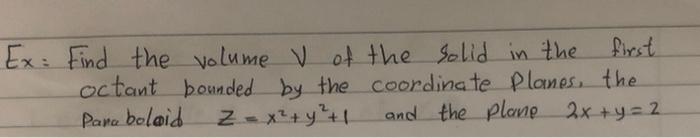 Ex: Find the volume V of the Solid in the first
octant bounded by the coordinate Planes, the
Paraboloid Z = x²+y²+1 and the plane 2x+y=2